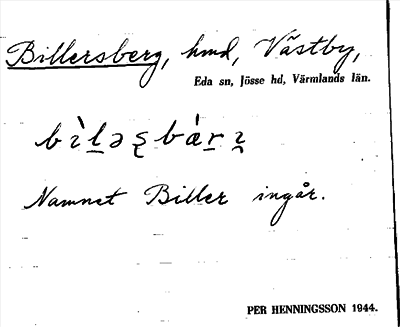 Billersberg, hmd, Västby,
Eda sn, Jösse hd, Värmlands län.
Namnet Biller ingår.
PER HENNINGSSON 1944.